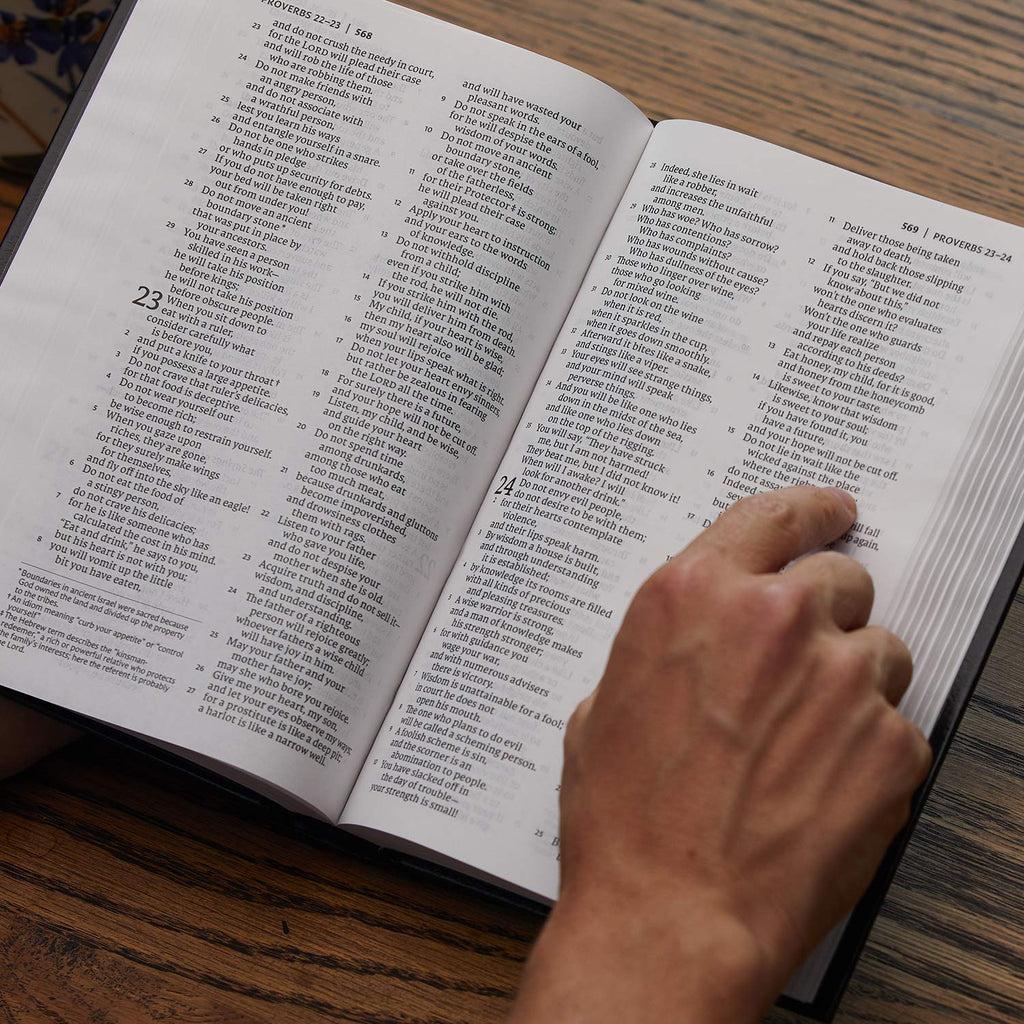 PROVERBS 22–23 | 568
and do not crush the needy in court,
23 for the LORD will plead their case
and will rob the life of those
who are robbing them.
24 Do not make friends with
an angry person,
and do not associate with
a wrathful person,
25 lest you learn his ways
and entangle yourself in a snare.
26 Do not be one who strikes
hands in pledge
or who puts up security for debts.
27 If you do not have enough to pay,
your bed will be taken right
out from under you!
28 Do not move an ancient
boundary stone*
that was put in place by
your ancestors.
29 You have seen a person
skilled in his work—
he will take his position
before kings;
he will not take his position
before obscure people.
23 When you sit down to
eat with a ruler,
consider carefully what
is before you,
2 and put a knife to your throat†
if you possess a large appetite.
3 Do not crave that ruler's delicacies,
for that food is deceptive.
4 Do not wear yourself out
to become rich;
be wise enough to restrain yourself.
5 When you gaze upon
riches, they are gone,
for they surely make wings
for themselves,
and fly off into the sky like an eagle!
6 Do not eat the food of
a stingy person,
do not crave his delicacies;
7 for he is like someone who has
calculated the cost in his mind.
"Eat and drink," he says to you,
but his heart is not with you;
8 you will vomit up the little
bit you have eaten,
*Boundaries in ancient Israel were sacred because
God owned the land and divided up the property
to the tribes.
†An idiom meaning "curb your appetite" or "control
yourself"
‡The Hebrew term describes the "kinsman-
redeemer," a rich or powerful relative who protects
the family's interests; here the referent is probably
the Lord.
and will have wasted your
pleasant words.
9 Do not speak in the ears of a fool,
for he will despise the
wisdom of your words.
10 Do not move an ancient
boundary stone,
or take over the fields
of the fatherless,
11 for their Protector‡ is strong;
he will plead their case
against you.
12 Apply your heart to instruction
and your ears to the words
of knowledge.
13 Do not withhold discipline
from a child;
even if you strike him with
the rod, he will not die.
14 If you strike him with the rod,
you will deliver him from death.
15 My child, if your heart is wise,
then my heart also will be glad;
16 my soul will rejoice
when your lips speak what is right.
17 Do not let your heart envy sinners,
but rather be zealous in fearing
the LORD all the time.
18 For surely there is a future,
and your hope will not be cut off.
19 Listen, my child, and be wise,
and guide your heart
on the right way.
20 Do not spend time
among drunkards,
among those who eat
too much meat,
21 because drunkards and gluttons
become impoverished,
and drowsiness clothes
them with rags.
22 Listen to your father
who gave you life,
and do not despise your
mother when she is old.
23 Acquire truth and do not sell it—
wisdom, and discipline,
and understanding.
24 The father of a righteous
person will rejoice greatly;
whoever fathers a wise child
will have joy in him.
25 May your father and your
mother have joy;
may she who bore you rejoice.
26 Give me your heart, my son,
and let your eyes observe my ways;
27 for a prostitute is like a deep pit;
a harlot is like a narrow well.
569 | PROVERBS 23–24
28 Indeed, she lies in wait
like a robber,
and increases the unfaithful
among men.
29 Who has woe? Who has sorrow?
Who has contentions?
Who has complaints?
Who has wounds without cause?
Who has dullness of the eyes?
30 Those who linger over wine,
those who go looking
for mixed wine.
31 Do not look on the wine
when it is red,
when it sparkles in the cup,
when it goes down smoothly.
32 Afterward it bites like a snake,
and stings like a viper.
33 Your eyes will see strange things,
and your mind will speak
perverse things.
34 And you will be like one who lies
down in the midst of the sea,
and like one who lies down
on the top of the rigging.
35 You will say, "They have struck
me, but I am not harmed!
They beat me, but I did not know it!
When will I awake? I will
look for another drink."
24 Do not envy evil people,
do not desire to be with them;
2 for their hearts contemplate
violence,
and their lips speak harm.
3 By wisdom a house is built,
and through understanding
it is established;
4 by knowledge its rooms are filled
with all kinds of precious
and pleasing treasures.
5 A wise warrior is strong,
and a man of knowledge makes
his strength stronger;
6 for with guidance you
wage your war,
and with numerous advisers
there is victory.
7 Wisdom is unattainable for a fool;
in court he does not
open his mouth.
8 The one who plans to do evil
will be called a scheming person.
9 A foolish scheme is sin,
and the scorner is an
abomination to people.
10 You have slacked off in
the day of trouble—
your strength is small!
11 Deliver those being taken
away to death,
and hold back those slipping
to the slaughter.
12 If you say, "But we did not
know about this,"
won't the one who evaluates
hearts discern it?
Won't the one who guards
your life realize
and repay each person
according to his deeds?
13 Eat honey, my child, for it is good,
and honey from the honeycomb
is sweet to your taste.
14 Likewise, know that wisdom
is sweet to your soul;
if you have found it, you
have a future,
and your hope will not be cut off.
15 Do not lie in wait like the
wicked against the place
where the right
do not assa
16 Indeed
sev
up again,
but
will fall
17 D
25 B